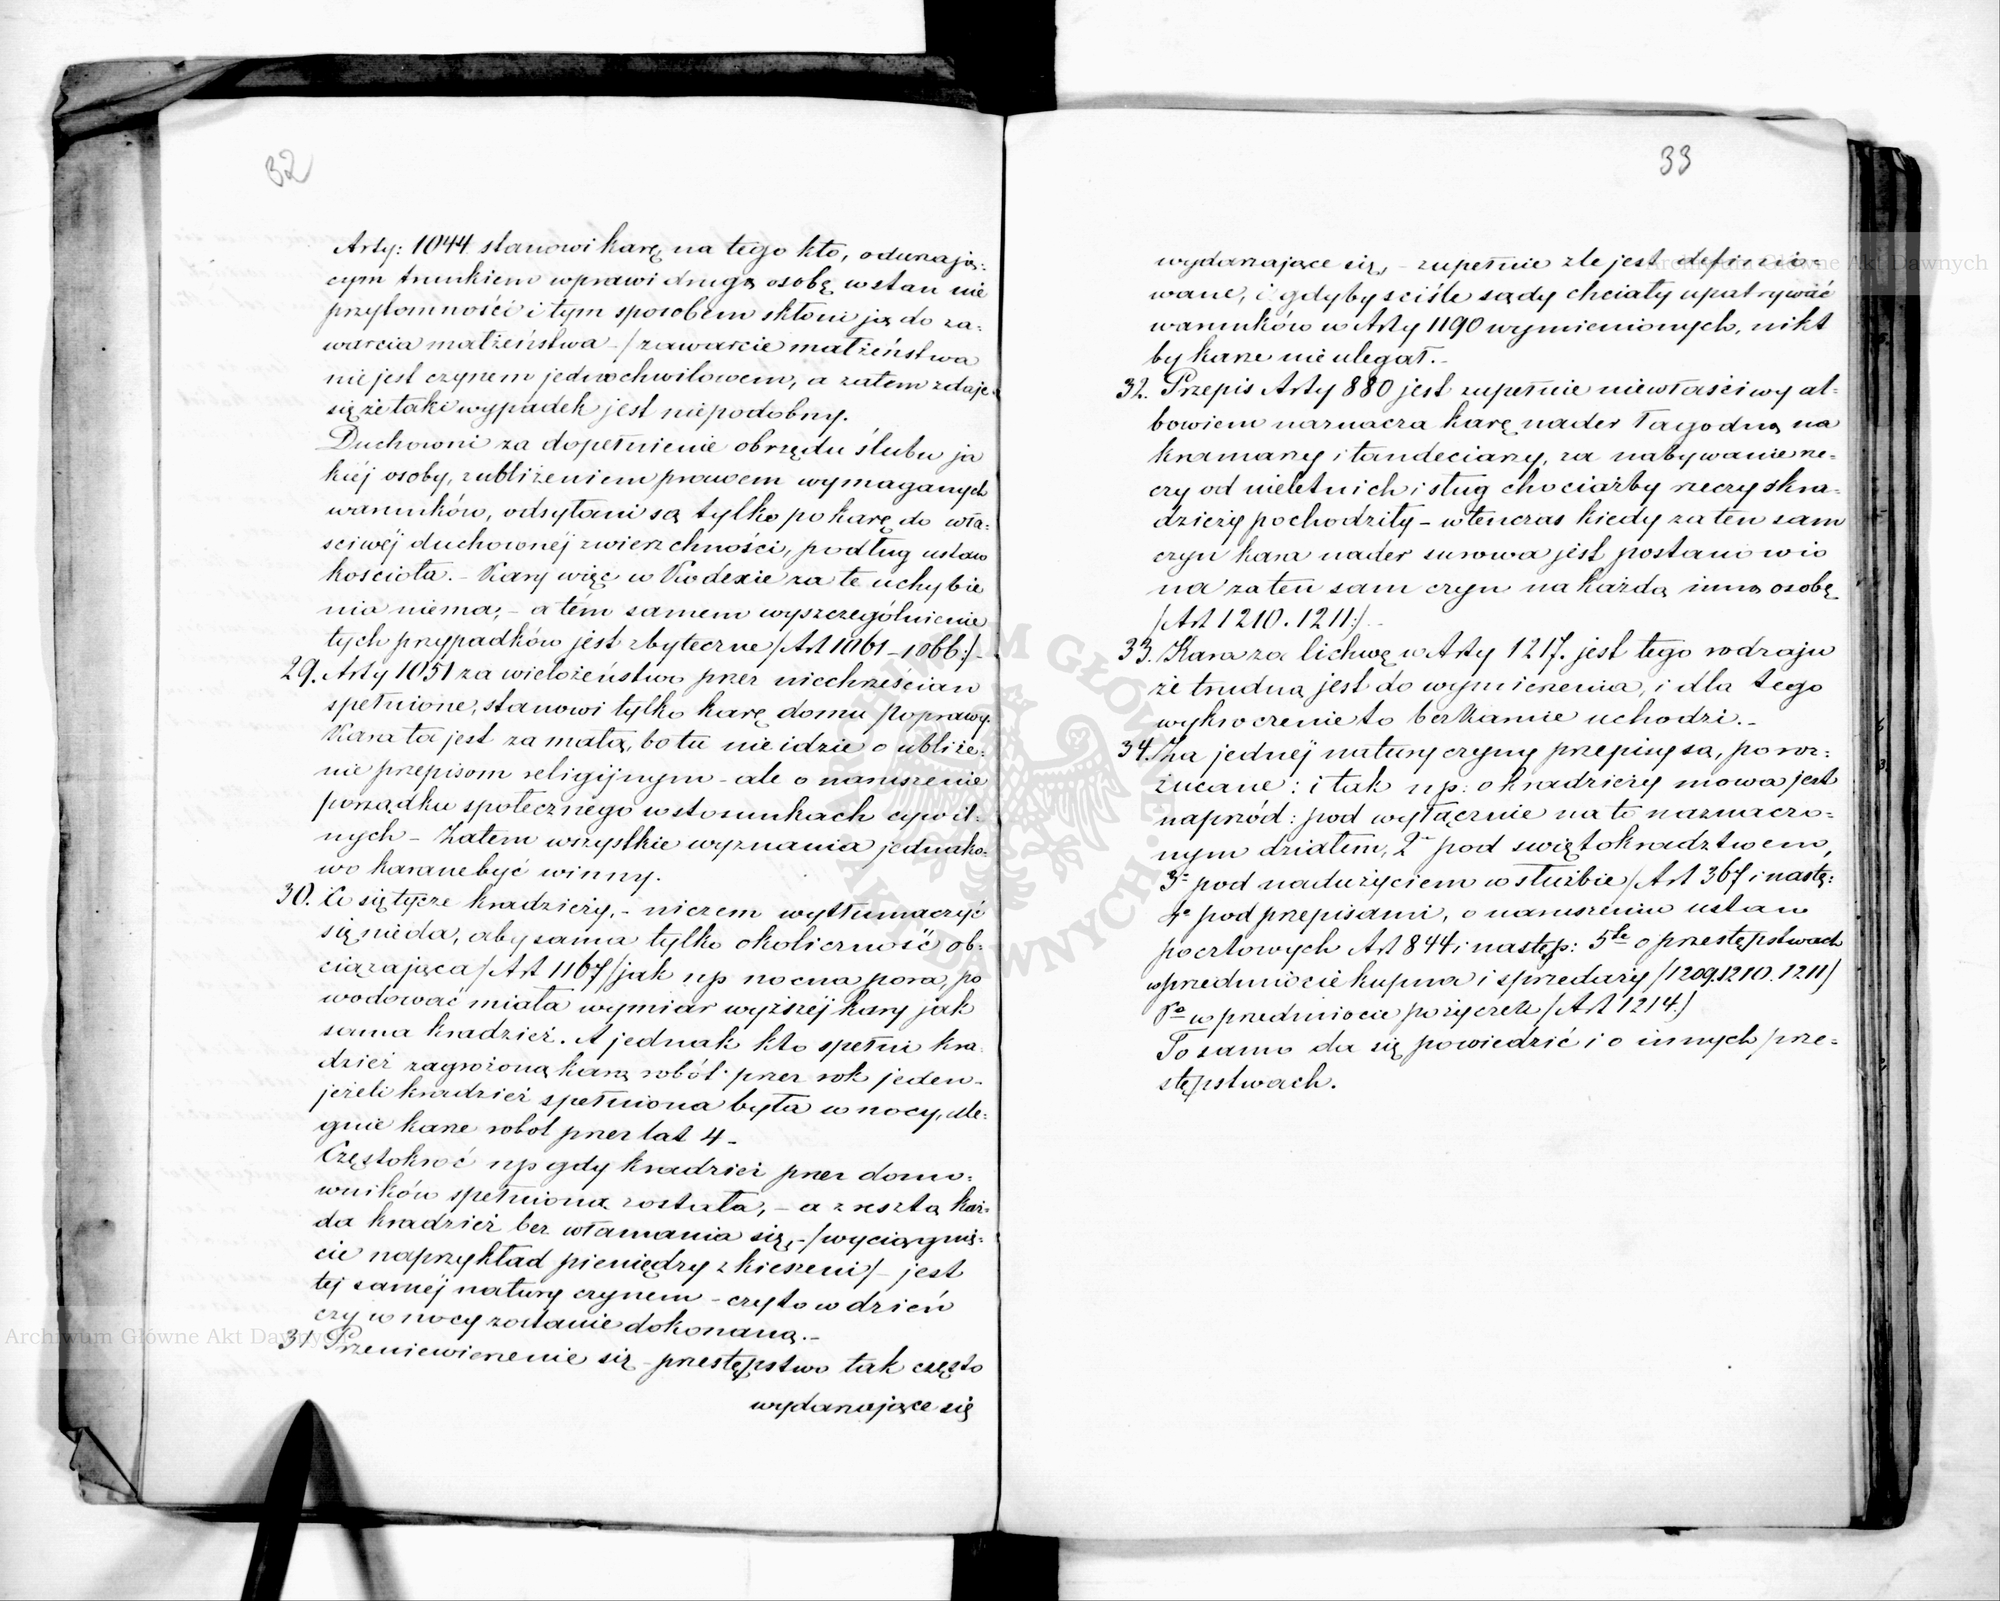 32
Arty: 1044 stanowi karę na tego kto, odurzają:
cym trunkiem wprawi drugą osobę w stan nie
przytomności i tym sposobem skłoni ją do za:
warcia małżeństwa - / zawarcie małżeństwa
nie jest czynem jednochwilowem, a zatem zdaje
się że taki wypadek jest niepodobny.
Duchowni za dopełnienie obrzędu ślubu ja
kiéj osoby, z ubliżeniem prawem wymaganych
warunków, odsyłani są tylko po karę do wła:
sciwéj duchownéj zwierzchności, podług ustaw
kościoła. - Kary więc w Kodexie za te uchybie
nia niema; - a tém samem wyszczególnienie
tych przypadków jest zbyteczne / Art 1061 - 1066:/ -
29. Arty 1051 za wielożeństwo przez niechrześcian
spełnione, stanowi tylko karę domu poprawy.
Kara ta jest za małą, bo tu nie idzie o ubliże:
nie przepisom religijnym - ale o naruszenie
porządku społecznego w stosunkach cywil:
nych - Zatem wszystkie wyznania jednako:
wo karane być winny.
30. Co się tycze kradzieży, - niczem wytłumaczyć
się nieda, aby sama tylko okoliczność ob:
ciążająca / Art 1167 / jak np nocna pora, po
wodować miała wymiar wyższéj kary jak
sama kradzież. A jednak kto spełni kra:
dzież zagrożoną karą robót przez rok jeden -
jeżeli kradzież spełniona była w nocy, ule:
gnie karze robót przez lat 4 -
Częstokroć np gdy kradzież przez domo:
wników spełnioną została, - a zresztą każ:
da kradzież bez włamania się, - / wyciągnię:
cie naprzykład pieniędzy z kieszeni / - jest
téj saméj natury czynem - czy to w dzień
czy w nocy zostanie dokonaną. -
31 Przeniewierzenie się - przestępstwo tak często
wydarzające się
33
wydarzające się, - zupełnie źle jest definio=
wane, i gdyby sciśle sądy chciały upatrywać
warunków w Arty 1190 wymienionych, nikt
by karze nie ulegał. -
32. Przepis Arty 880 jest zupełnie niewłaściwy al=
bowiem naznacza karę nader łagodną na
kramarzy i tandeciarzy, za nabywanie rze=
czy od nieletnich i sług chociażby rzeczy z kra=
dzieży pochodziły - wtenczas kiedy za ten sam
czyn kara nader surowa jest postanowio
na za ten sam czyn na każdą inną osobę
/ Art 1210. 1211:/ -
33. Kara za lichwę w Arty 1217. jest tego rodzaju
że trudną jest do wymierzenia, i dla tego
wykroczenie to bezkarnie uchodzi. -
34. Za jednéj natury czyny przepisy są, poroz:
żucane: i tak np: o kradzieży mowa jest
naprzód: pod wyłącznie na to naznaczo=
nym działem, 2° pod swiętokradztwem,
3° pod nadużyciem w służbie / Art 367 i nastę:
4° pod przepisami, o naruszeniu ustaw
pocztowych Art 844 i następ: 5te o przestępstwach
w przedmiocie kupna i sprzedaży / 1209. 1210. 1211 /
w przedmiocie pożyczek / Art 1214. /
To samo da się powiedzić i o innych prze=
stępstwach.
Archiwum Główne Akt Dawnych
Archiwum Główne Akt Dawnych
ARCHIWUM GŁÓWNE AKT DAWNYCH